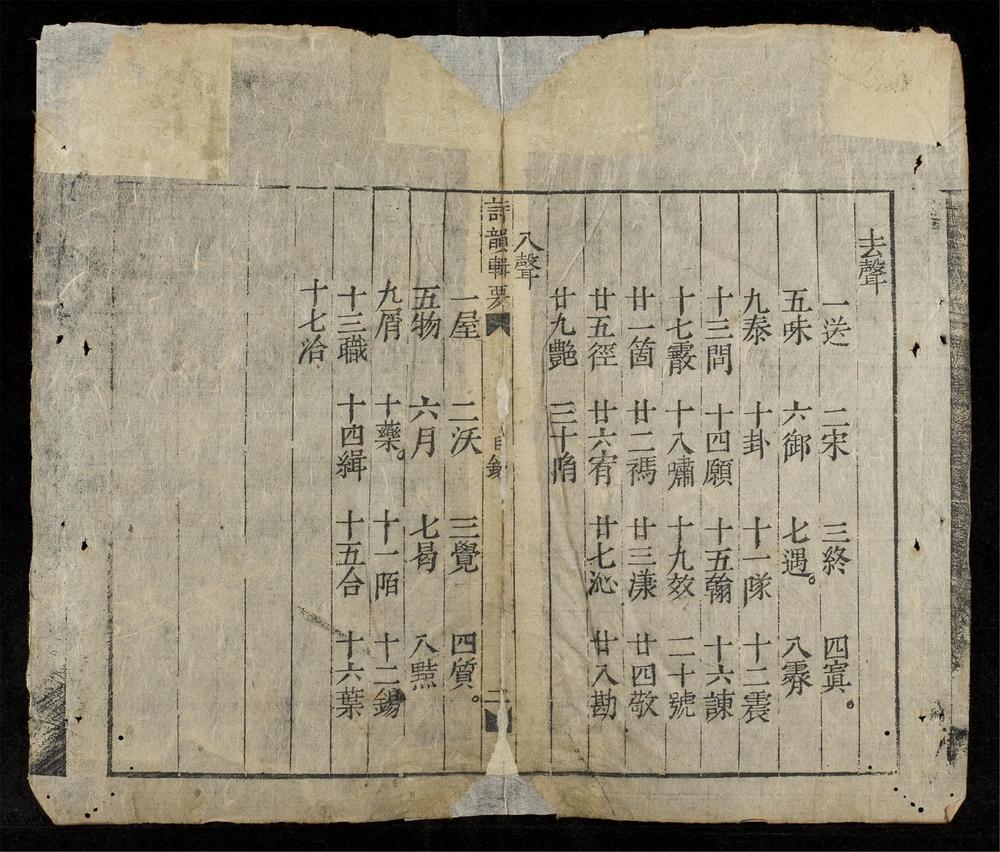 去聲
一送 二宋 三終 四寘。
五味 六御 七遇。 八霽
九泰 十卦 十一隊 十二震
十三問 十四願 十五翰 十六諫
十七霰 十八嘯 十九效 二十號
廿一箇 廿二禡 廿三漾 廿四敬
廿五徑 廿六宥 廿七沁 廿八勘
廿九艷 三十陷
入聲
詩韻輯要 目錄 二
一屋 二沃 三覺 四質。
五物 六月 七曷 八黠
九屑 十藥。 十一陌 十二錫
十三職 十四緝 十五合 十六葉
十七洽